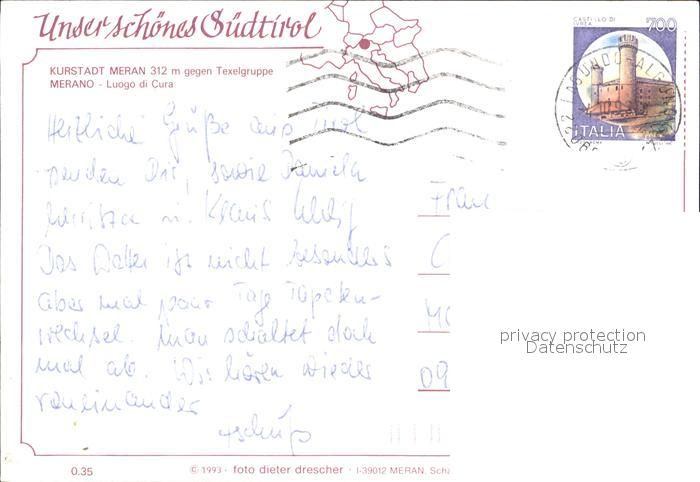 Unser schönes Südtirol
KURSTADT MERAN 312 m gegen Texelgruppe
MERANO - Luogo di Cura
CASTELLO DI
IVREA
700
ITALIA
Herzliche Grüße aus Tirol
senden Dir, sowie Daniela
u. Klaus
Das Wetter ist nicht besonders
aber mal paar Tage Tapeten-
wechsel. Man schaltet doch
mal ab. Wir hören wieder
voneinander
tschüß
privacy protection
Datenschutz
0.35
© 1993 · foto dieter drescher · I-39012 MERAN